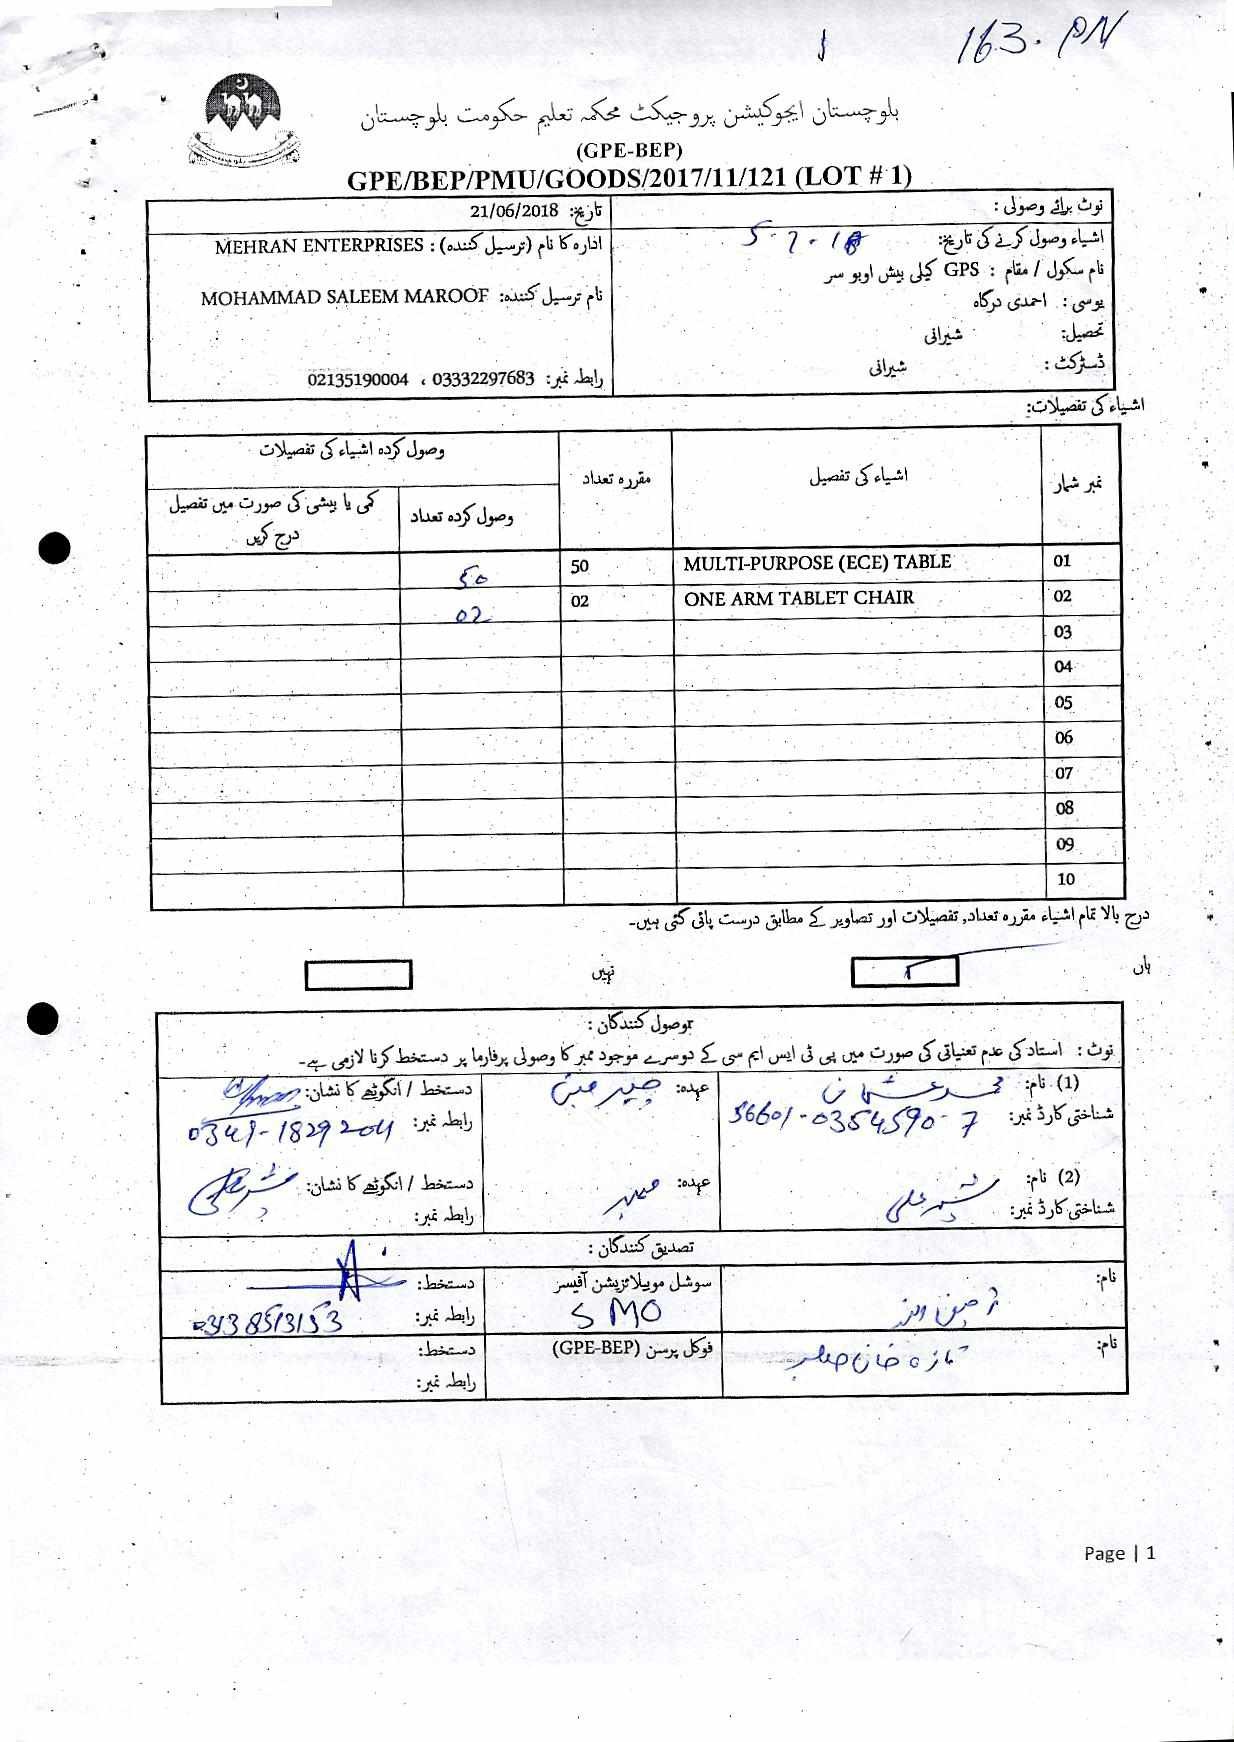 163. PN
بلوچستان ایجوکیشن پروجیکٹ محکمہ تعلیم حکومت بلوچستان
(GPE-BEP)
GPE/BEP/PMU/GOODS/2017/11/121 (LOT # 1)
نوٹ برائے وصولی :
تاریخ: 21/06/2018
اشیاء وصول کرنے کی تاریخ: 5-7-18
ادارہ کا نام (ترسیل کنندہ) : MEHRAN ENTERPRISES
نام سکول / مقام : GPS کیلی بیش اوبو سر
نام ترسیل کنندہ: MOHAMMAD SALEEM MAROOF
یوسی : احمدی درگاہ
تحصیل: شیرانی
ڈسٹرکٹ : شیرانی
رابطہ نمبر: 03332297683 ، 02135190004
اشیاء کی تفصیلات:
نمبر شمار اشیاء کی تفصیل مقررہ تعداد وصول کردہ اشیاء کی تفصیلات
وصول کردہ تعداد کمی یا بیشی کی صورت میں تفصیل درج کریں
01 MULTI-PURPOSE (ECE) TABLE 50 50
02 ONE ARM TABLET CHAIR 02 02
03
04
05
06
07
08
09
10
درج بالا تمام اشیاء مقررہ تعداد, تفصیلات اور تصاویر کے مطابق درست پائی گئی ہیں۔
ہاں نہیں
وصول کنندگان :
نوٹ : استاد کی عدم تعنیاتی کی صورت میں پی ٹی ایس ایم سی کے دوسرے موجود ممبر کا وصولی پرفارما پر دستخط کرنا لازمی ہے۔
(1) نام: محمد عثمان عہدہ: چیئرمین دستخط / انگوٹھے کا نشان:
شناختی کارڈ نمبر: 56601-0354590-7 رابطہ نمبر: 0341-1829204
(2) نام: شیر علی عہدہ: ممبر دستخط / انگوٹھے کا نشان: شیر علی
شناختی کارڈ نمبر: رابطہ نمبر:
تصدیق کنندگان :
نام: سوشل موبیلائزیشن آفیسر دستخط:
SMO رابطہ نمبر: 03138513153
نام: تازہ خان صاحب فوکل پرسن (GPE-BEP) دستخط:
رابطہ نمبر:
Page | 1